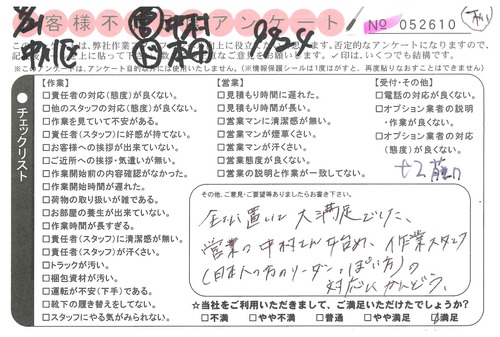 お客様不満アンケート
中村
本田
9924
No 052610
このアンケートは、弊社作業
上に役立
す。否定的なアンケートになりますので、
※このアンケートは、アンケート目的以外には使用いたしません。(※情報保護シールは1度はがすと、再度貼りなおすことはできません)
チェックリスト
【作業】
□責任者の対応(態度)が良くない。
□他のスタッフの対応(態度)が良くない。
□作業を見ていて不安がある。
□責任者(スタッフ)に好感が持てない。
□お客様への挨拶が出来ていない。
□ご近所への挨拶・気遣いが無い。
□作業開始前の内容確認がなかった。
□作業開始時間が遅れた。
□荷物の取り扱いが雑である。
□お部屋の養生が出来ていない。
□作業時間が長すぎる。
□責任者(スタッフ)に清潔感が無い。
□責任者(スタッフ)が汗くさい。
□トラックが汚い。
□梱包資材が汚い。
□運転が不安(下手)である。
□靴下の履き替えをしてない。
□スタッフにやる気がみられない。
【営業】
□見積もり時間に遅れた。
□見積もり時間が長い。
□営業マンに清潔感が無い。
□営業マンが煙草くさい。
□営業マンが汗くさい。
□営業態度が良くない。
□営業の説明と作業が一致してない。
【受付・その他】
□電話の対応が良くない。
□オプション業者の説明
・作業が良くない。
□オプション業者の対応
(態度)が良くない。
その他、ご意見・ご要望等ありましたらお書き下さい。
大満足でした、
営業の中村さん始め、作業スタッフ
(日本人の方のリーダーっぽい方)の
対応にかんどう。
☆当社をご利用いただきまして、ご満足いただけたでしょうか?
□不満 □やや不満 □普通 □やや満足 ☑満足